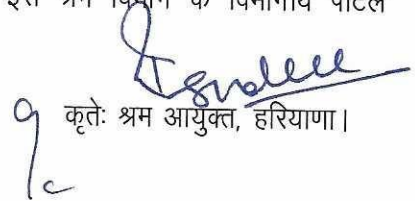 इसे श्रम विभाग के विभागीय पोर्टल
कृतेः श्रम आयुक्त, हरियाणा।